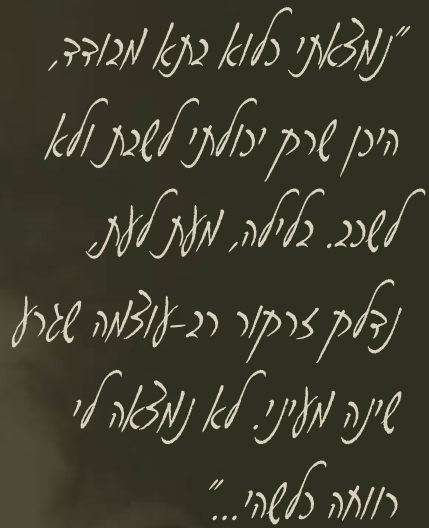 "נמצאתי כלוא בתא מבודד,
היכן שרק יכולתי לשבת ולא
לשכב. בלילה, מעת לעת,
נדלק זרקור רב-עוצמה שגרע
שינה מעיני. לא נמצאה לי
רווחה כלשהי..."